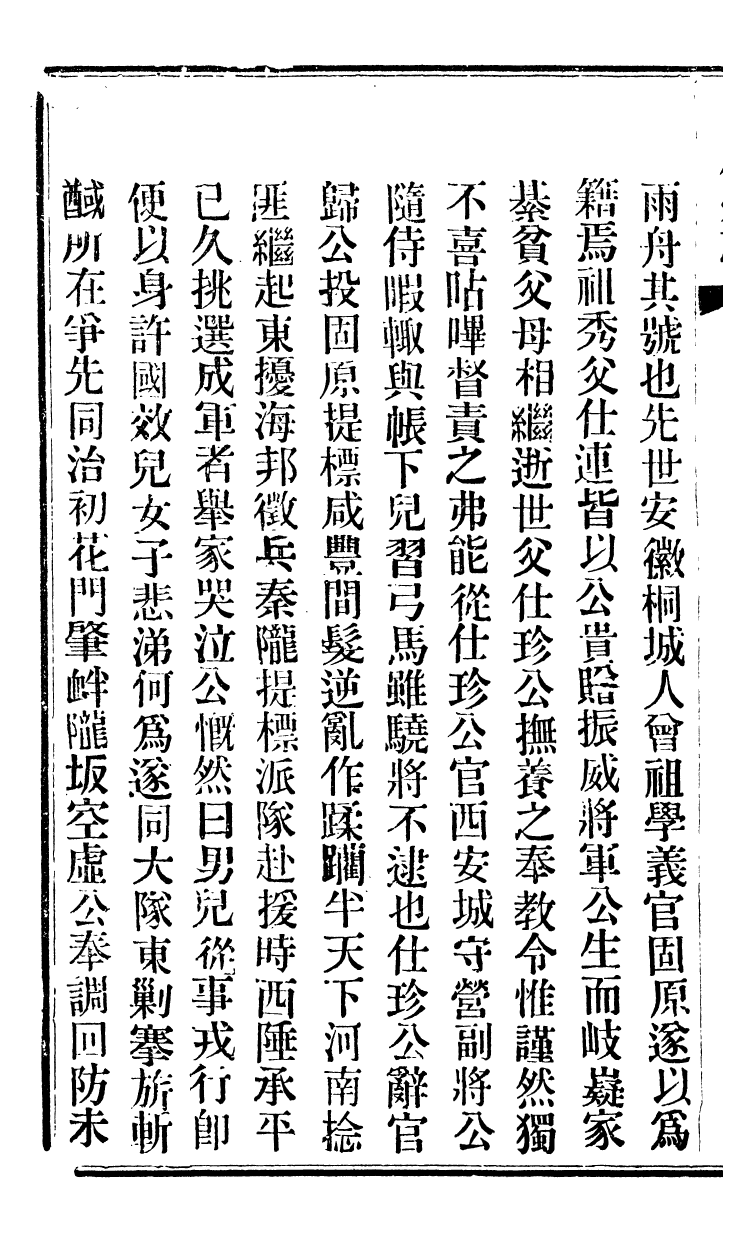 雨舟其號也先世安徽桐城人曾祖學義官固原遂以爲
籍焉祖秀父仕連皆以公貴賠振威將軍公生而岐嶷家
綦貧父母相繼逝世父仕珍公撫養之奉教令惟謹然獨
不喜呫嗶督責之弗能從仕珍公官西安城守營副將公
隨侍暇輙與帳下兒習弓馬雖驍將不逮也仕珍公辭官
歸公投固原提標咸豐間髮逆亂作蹂躪半天下河南捻
匪繼起東擾海邦徵兵秦隴提標派隊赴援時西陲承平
已久挑選成軍者舉家哭泣公慨然曰男兒從事戎行卽
便以身許國效兒女子悲涕何爲遂同大隊東剿搴旂斬
馘所在爭先同治初花門肇衅隴坂空虛公奉調回防未